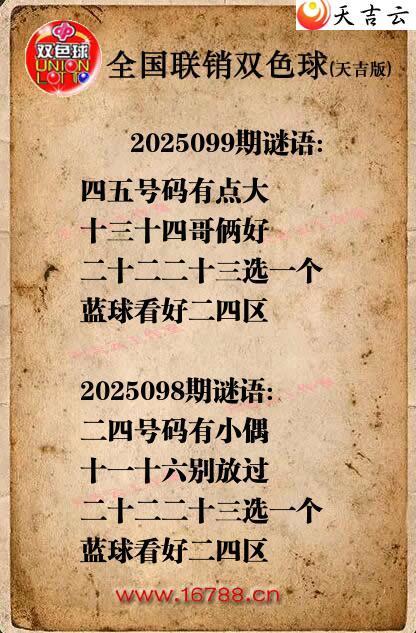 天吉云
双色球
UNION
LOTTO
全国联销双色球(天吉版)
2025099期谜语:
四五号码有点大
十三十四哥俩好
二十二二十三选一个
蓝球看好二四区
2025098期谜语:
二四号码有小偶
十一十六别放过
二十二二十三选一个
蓝球看好二四区
www.16788.cn